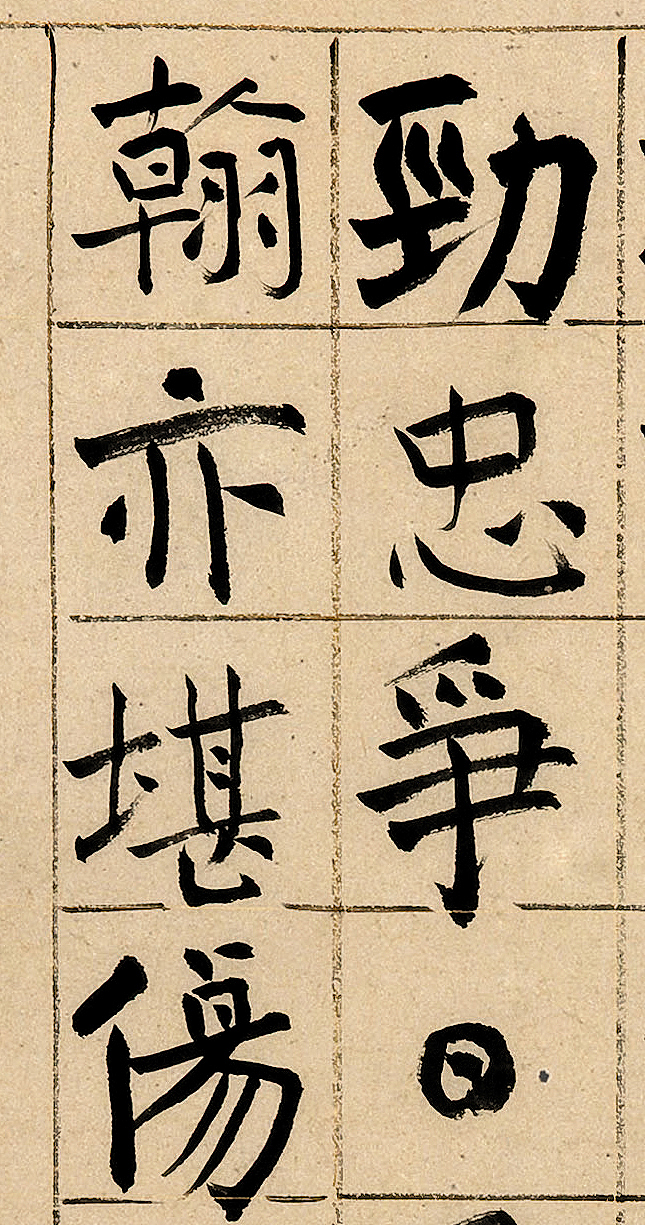 勁忠爭日
翰亦堪傷